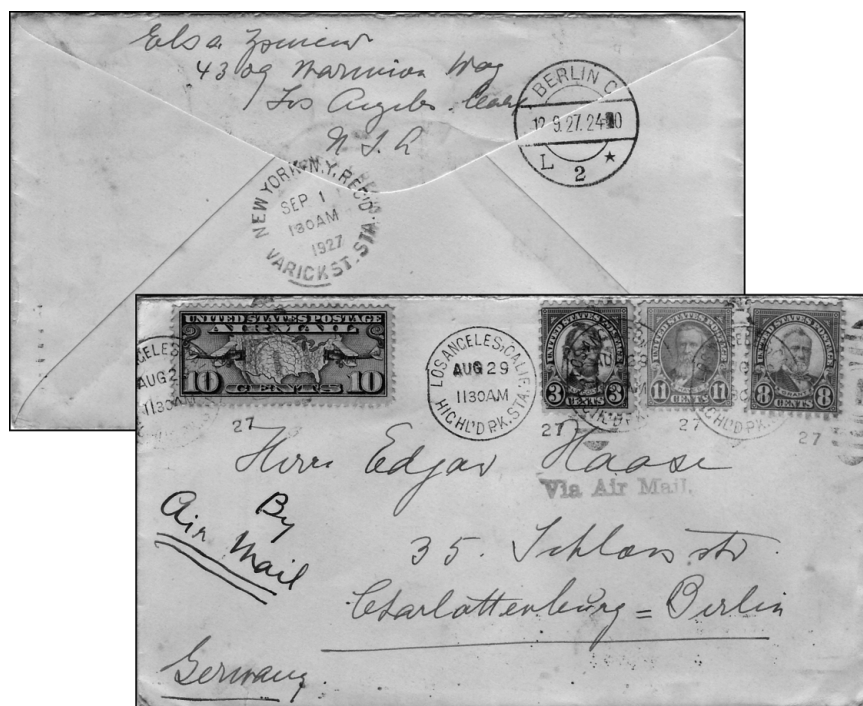 Elsa
4309 Marmion Way
Los Angeles
BERLIN C
12.9.27.24
L 2 *
NEW YORK, N.Y. REC'D.
SEP 1
130AM
1927
VARICK ST. STA.
UNITED STATES POSTAGE
AIR MAIL
10 CENTS 10
AUG 2
1130A
27
LOS ANGELES, CALIF.
AUG 29
1130AM
HIGHL'D PK. STA.
UNITED STATES POSTAGE
3 CENTS 3
27
UNITED STATES POSTAGE
11 CENTS 11
27
UNITED STATES POSTAGE
GRANT
8 CENTS 8
27
Herrn Edgar Haase
Via Air Mail.
By
Air Mail
35. Schloss str.
Charlottenburg = Berlin
Germany.